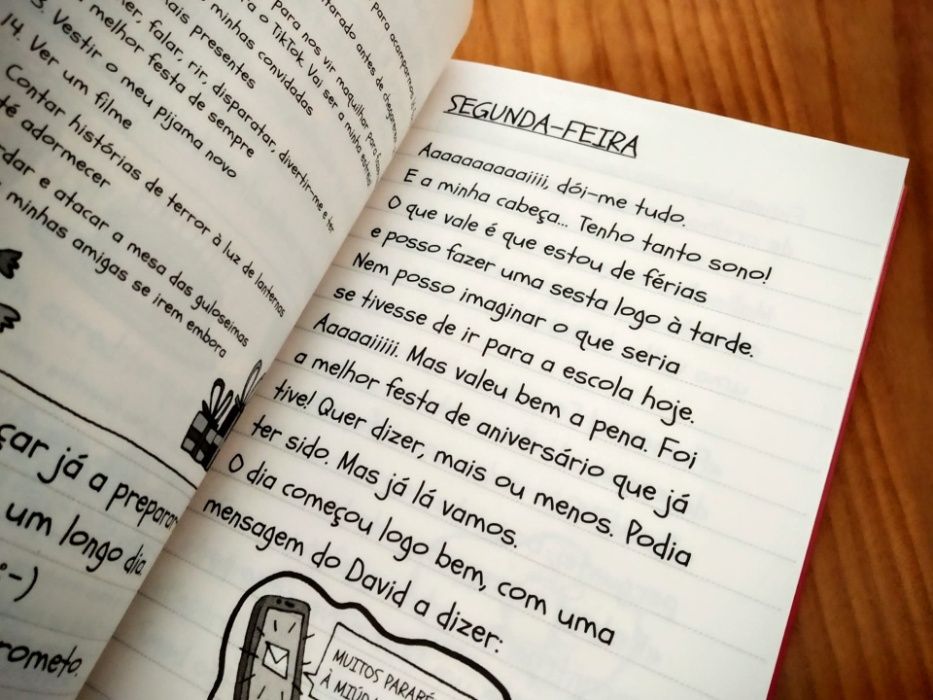 Para acamparmos
tarado antes de
Para nos vir maquilhar para
a o TikTok. Vai ser a minha estreia
minhas convidadas
ais presentes
er, falar, rir, disparatar, divertir-me e ter
melhor festa de sempre
3. Vestir o meu pijama novo
14. Ver um filme
Contar histórias de terror à luz de lanternas
té adormecer
rdar e atacar a mesa das guloseimas
minhas amigas se irem embora
çar já a preparar
um longo dia.
:-)
rometo.
SEGUNDA-FEIRA
Aaaaaaaaaaiiii, dói-me tudo.
E a minha cabeça... Tenho tanto sono!
O que vale é que estou de férias
e posso fazer uma sesta logo à tarde.
Nem posso imaginar o que seria
se tivesse de ir para a escola hoje.
Aaaaaiiiii. Mas valeu bem a pena. Foi
a melhor festa de aniversário que já
tive! Quer dizer, mais ou menos. Podia
ter sido. Mas já lá vamos.
O dia começou logo bem, com uma
mensagem do David a dizer:
MUITOS PARABÉ
À MIÚD